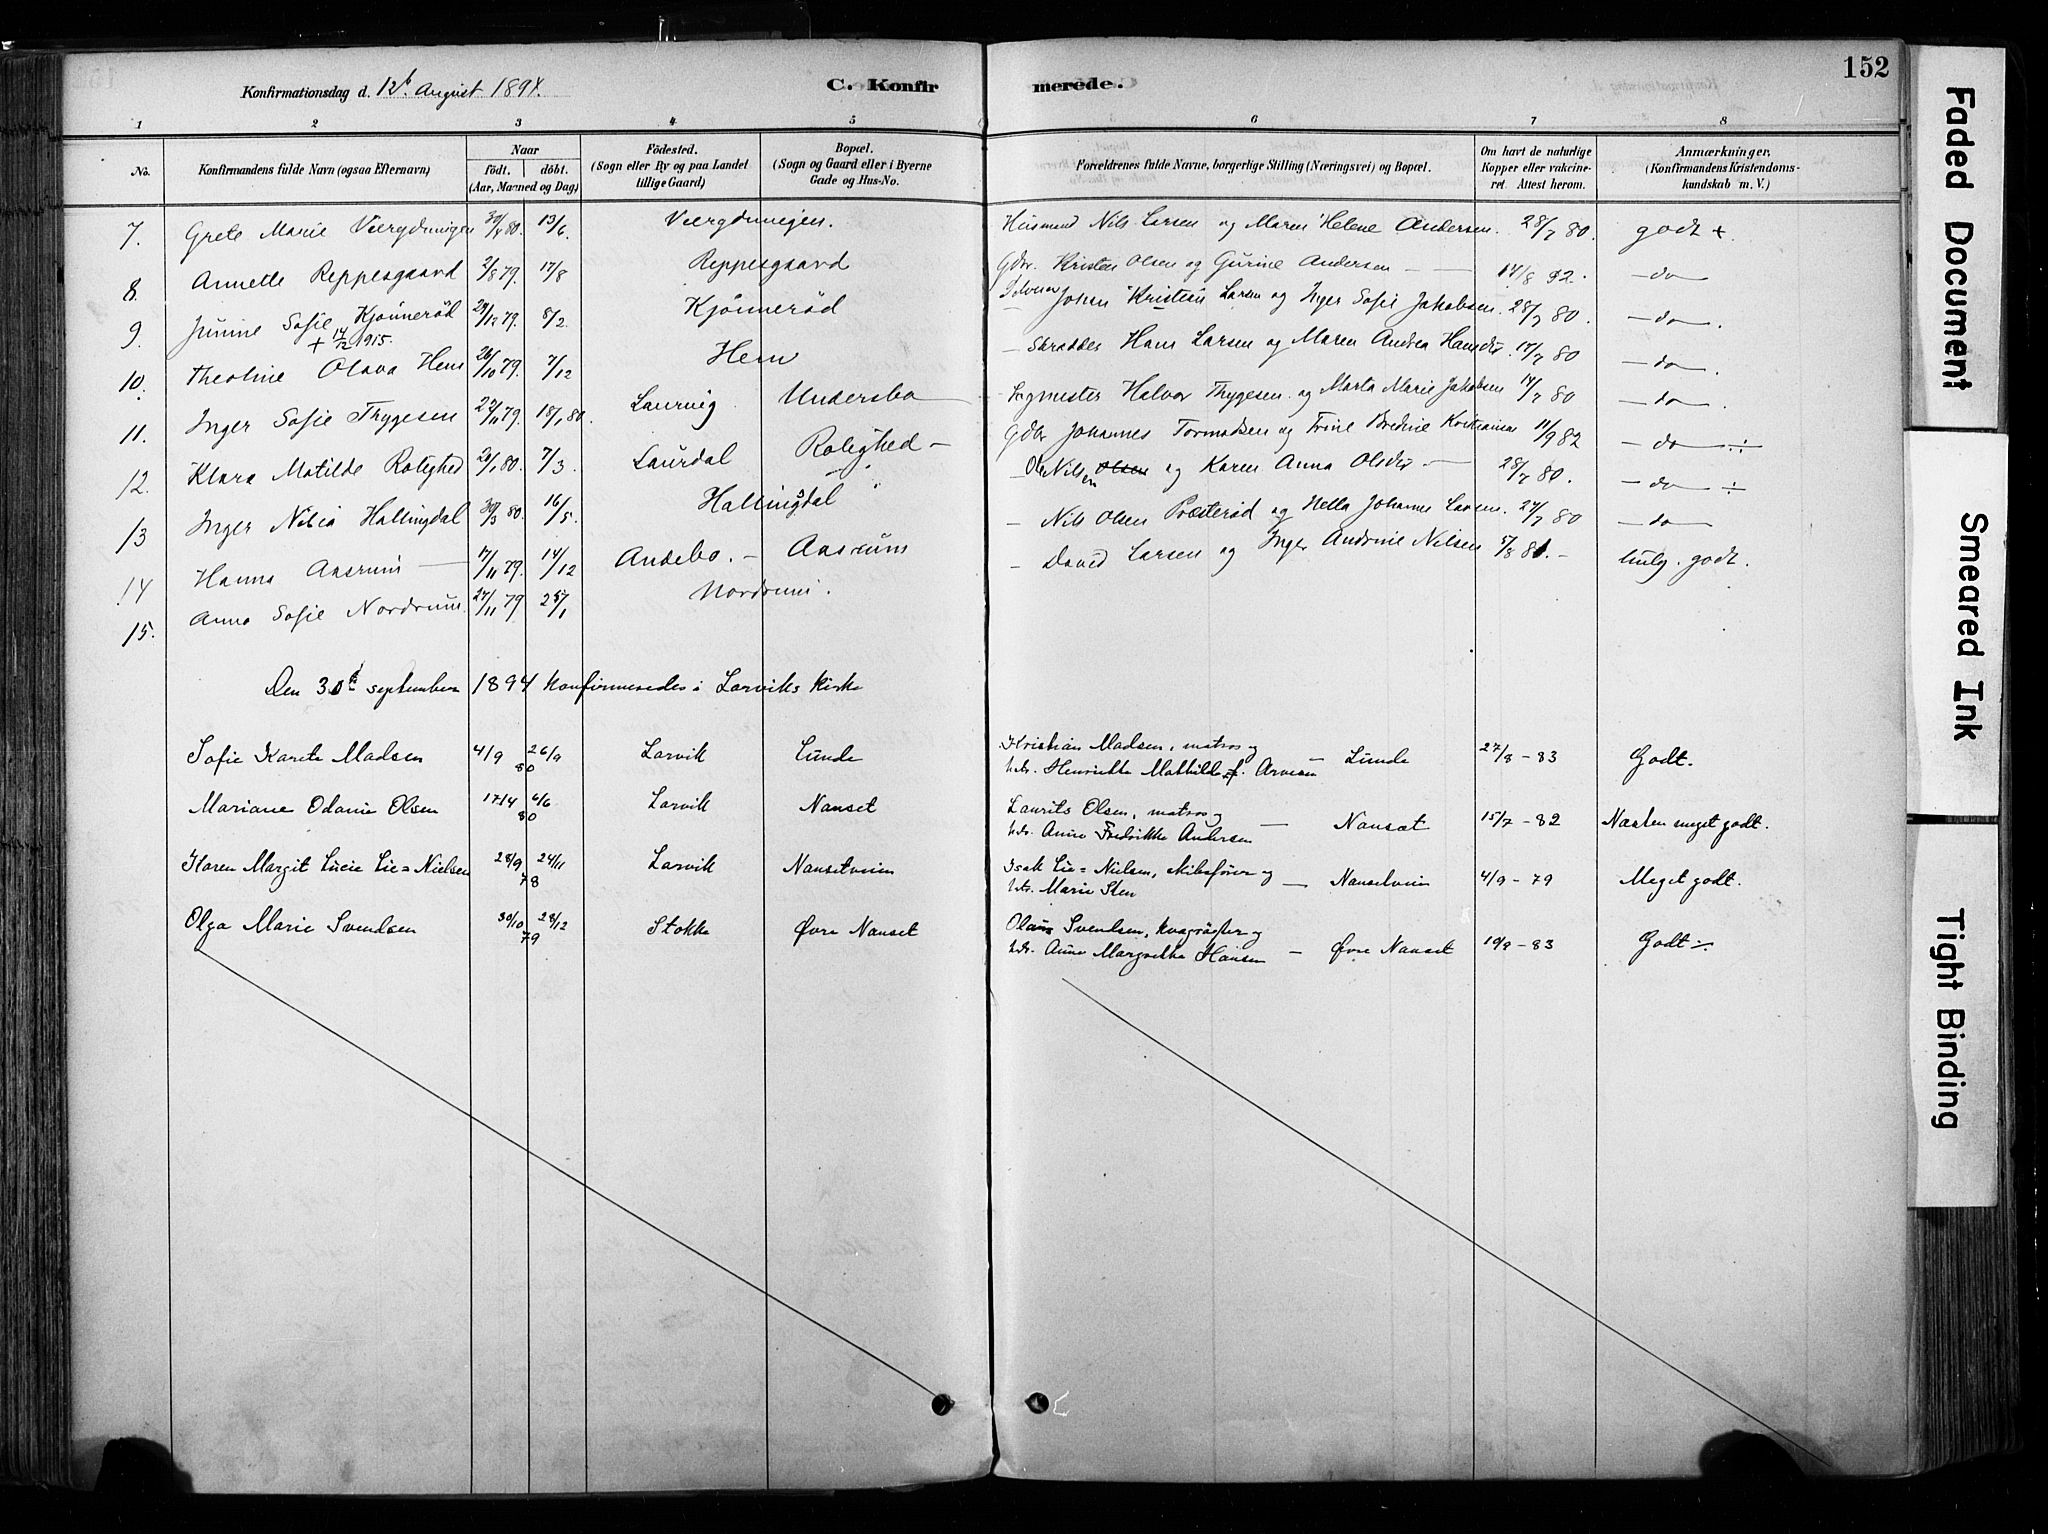 152
Konfirmationsdag d. 12t August 1894.
C. Konfir merede.
1 2 3 4 5 6 7 8
No. Konfirmandens fulde Navn (ogsaa Efternavn) Naar Födested. Bopæl. Forældrenes fulde Navne, borgerlige Stilling (Næringsvei) og Bopæl. Om havt de naturlige Anmærkninger,
födt. döbt. (Sogn eller By og paa Landet (Sogn og Gaard eller i Byerne Kopper eller vakcine- (Konfirmandens Kristendoms-
(Aar, Maaned og Dag) tillige Gaard) Gade og Hus-No. ret. Attest herom. kundskab m. V.)
7. Grete Marie 80. 13/6. Husmand Nils Larsen og Maren Helene Andersen. 28/7 80. godt +
8. Annette Reppesgaard 2/8 79. 17/8 Reppesgaard Gdbr. Kristen Olsen og Gurine Andersen — 14/8 92. — do —
9. Junine Sofie Kjønnerød 29/12 79. 8/2. Kjønnerød Johan Kristian Larsen og Inger Sofie Jakobsen. 28/7 80. — do — .
+ 14/12 1915.
10. Theoline Olava Hem 26/10 79. 7/12 Hem — Skrædder Hans Larsen og Maren Andrea Hansdtr. 17/7 80 — do — .
11. Inger Sofie Thygesen 79. 18/1 80. Laurvig Undersbo Lægmester Halvor Thygesen og Marta Marie Jakobsen 14/7 80 — do — .
12. Klara Matilde Rolighed 26/1 80. 7/3. Laurdal Rolighed — Gdbr Johannes Tormodsen og Trine Bredine Kristiansen 11/9 82 — do — ÷
13 Inger Hallingdal 30/3 80. 16/5. Hallingdal — Ole Nilsen Olsen og Karen Anna Olsdtr — 28/7 80. — do — ÷
14 Hanna Aasrum — 79. 14/12 Andebo. — Aasrum — Nils Olsen Præsterød og Johanne Larsen. 24/7 80 — do —
15. Anna Sofie Nordrum. 27/11 79 25/1 Nordrum. — David Larsen og Inger Andrine Nilsen 5/8 81. — godt.
Den 30te september 1894 konfirmeredes i Larviks kirke
Sofie Karete Madsen 4/9 80 26/9 Larvik Lunde Kristian Madsen, matros og
Henrikke Mathilde f. Arvesen — Lunde 27/8 - 83 Godt.
Mariane Odanie Olsen 17/4 80 6/6 Larvik Nanset Laurits Olsen, matros og
Anne Fredrikke Andersen — Nanset 15/7 - 82 Næsten meget godt.
Karen Margit Lucie Lie=Nielsen 28/9 78 24/11 Larvik Nansetveien Isak Lie=Nielsen, skibsfører og
Marie Sten — Nansetveien 4/9 - 79 Meget godt.
Olga Marie Svendsen 30/10 79 28/12 Stokke Øvre Nanset Olaus Svendsen, kvægrøgter og
Anne Margrethe Hansen — Øvre Nanset 19/9 - 83 Godt ÷
Faded Document
Smeared Ink
Tight Binding